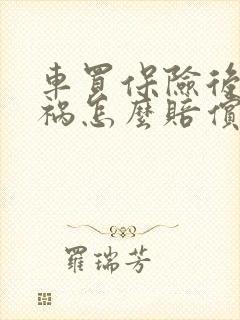 車買保險後
禍怎麼賠償
羅瑞芳